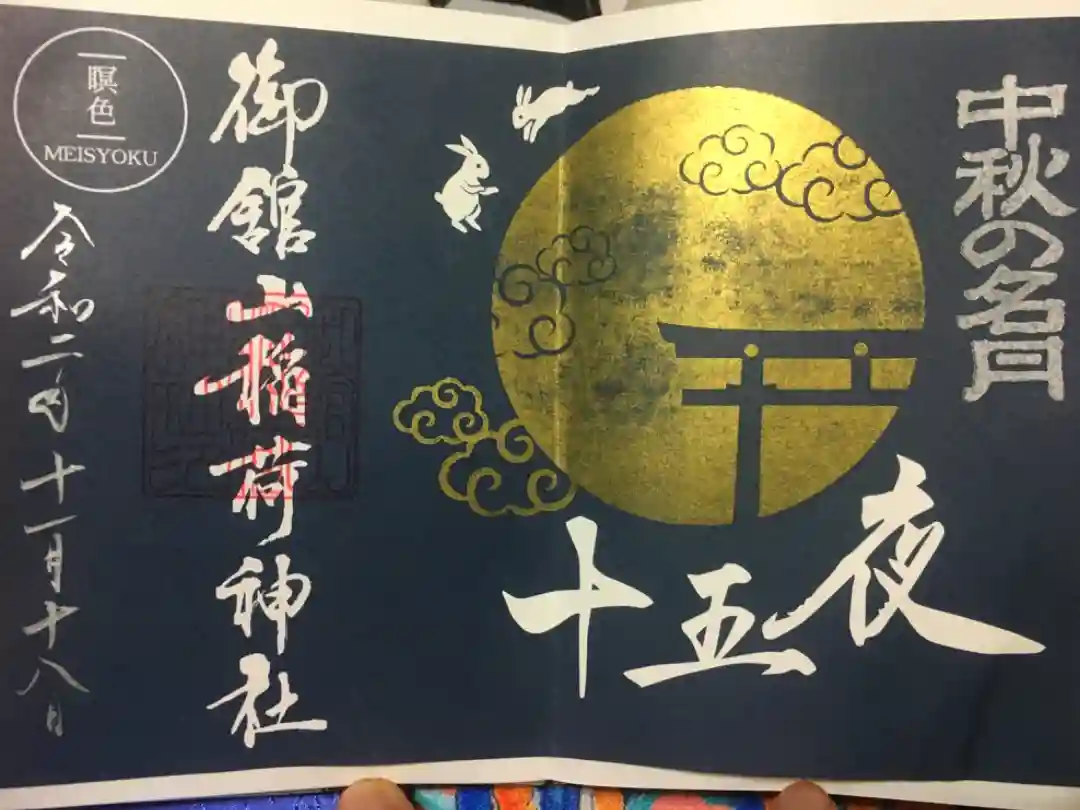 中秋の名月
十五夜
御舘山稲荷神社
瞑色
MEISYOKU
令和二年十一月十八日